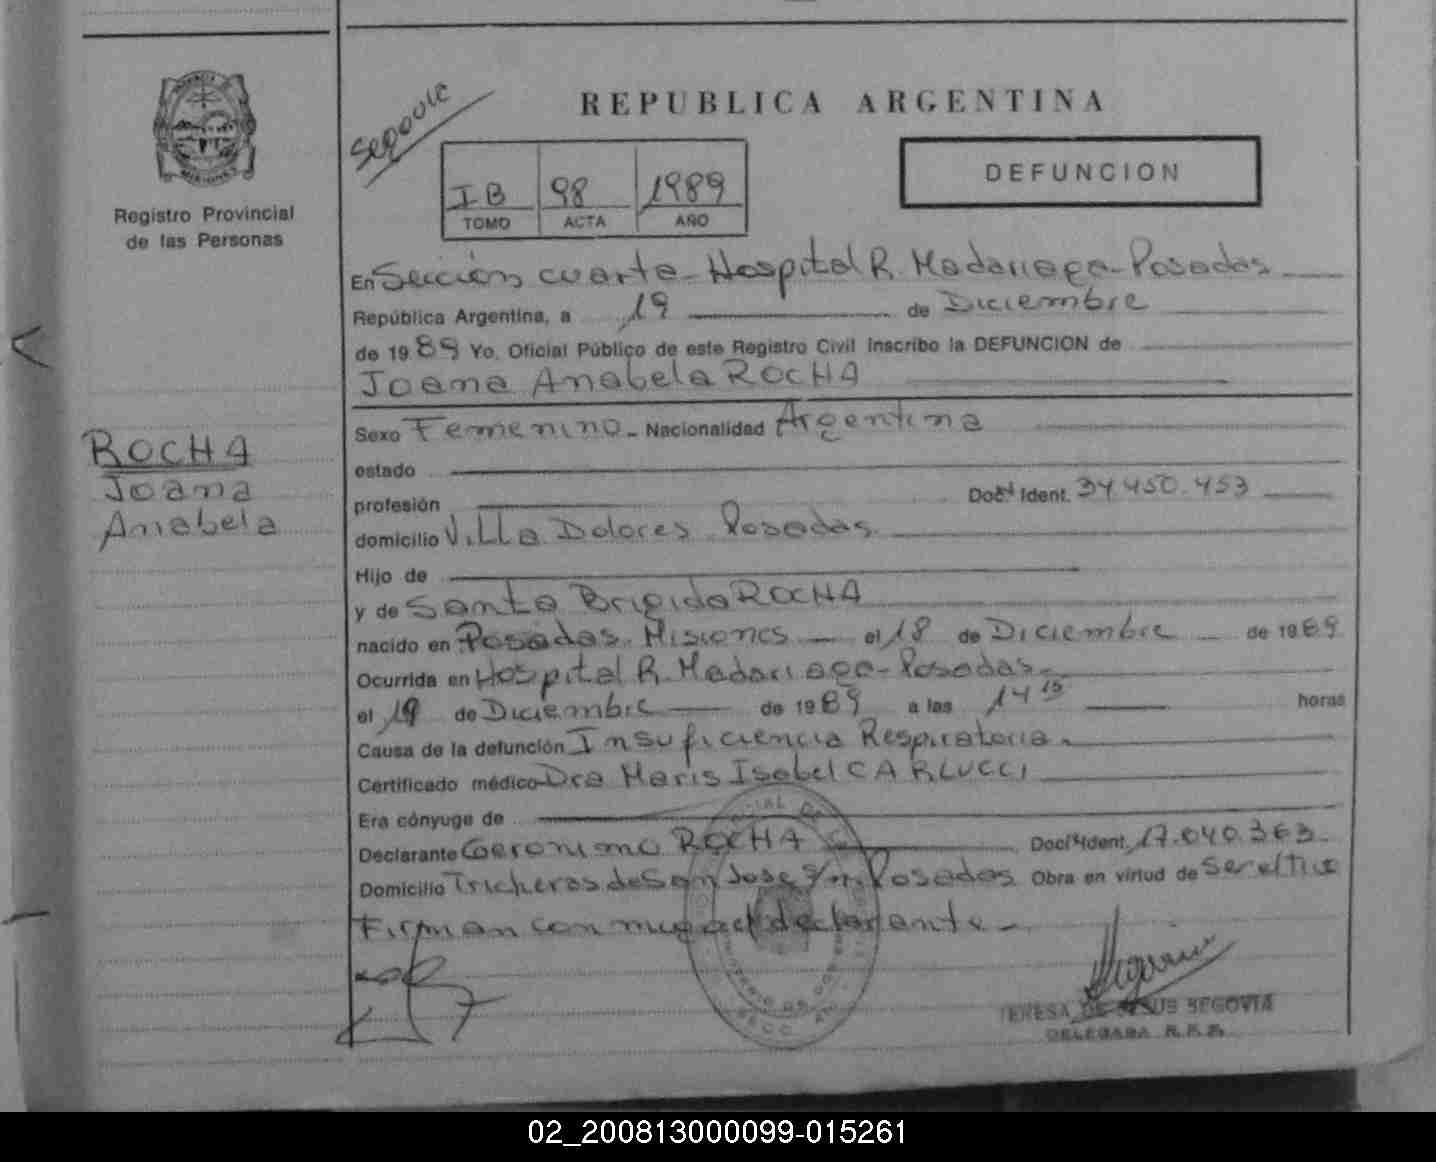 REPUBLICA ARGENTINA
DEFUNCION
IB 98 1989
TOMO ACTA AÑO
Registro Provincial
de las Personas
ROCHA
Joana
Anabela
En Sección cuarta - Hospital R. Madariaga - Posadas
República Argentina, a 19 de Diciembre
de 1989 Yo, Oficial Público de este Registro Civil inscribo la DEFUNCION de
Joana Anabela ROCHA
Sexo Femenino - Nacionalidad Argentina
estado
profesión Doc. Ident. 34.450.453
domicilio Villa Dolores - Posadas
Hijo de
y de Santa Brigida ROCHA
nacido en Posadas - Misiones - el 18 de Diciembre - de 1989
Ocurrida en Hospital R. Madariaga - Posadas -
el 19 de Diciembre de 1989 a las 14 15 horas
Causa de la defunción Insuficiencia Respiratoria -
Certificado médico Dra Maris Isabel CARLUCCI
Era cónyuge de
Declarante Geronimo ROCHA Doc. Ident. 17.040.363 -
Domicilio Tricheros de San Jose s/n Posadas Obra en virtud de Ser el Tio
Firman con migo el declarante -
TERESA DE JESUS SEGOVIA
DELEGADA R.P.P.
02_200813000099-015261